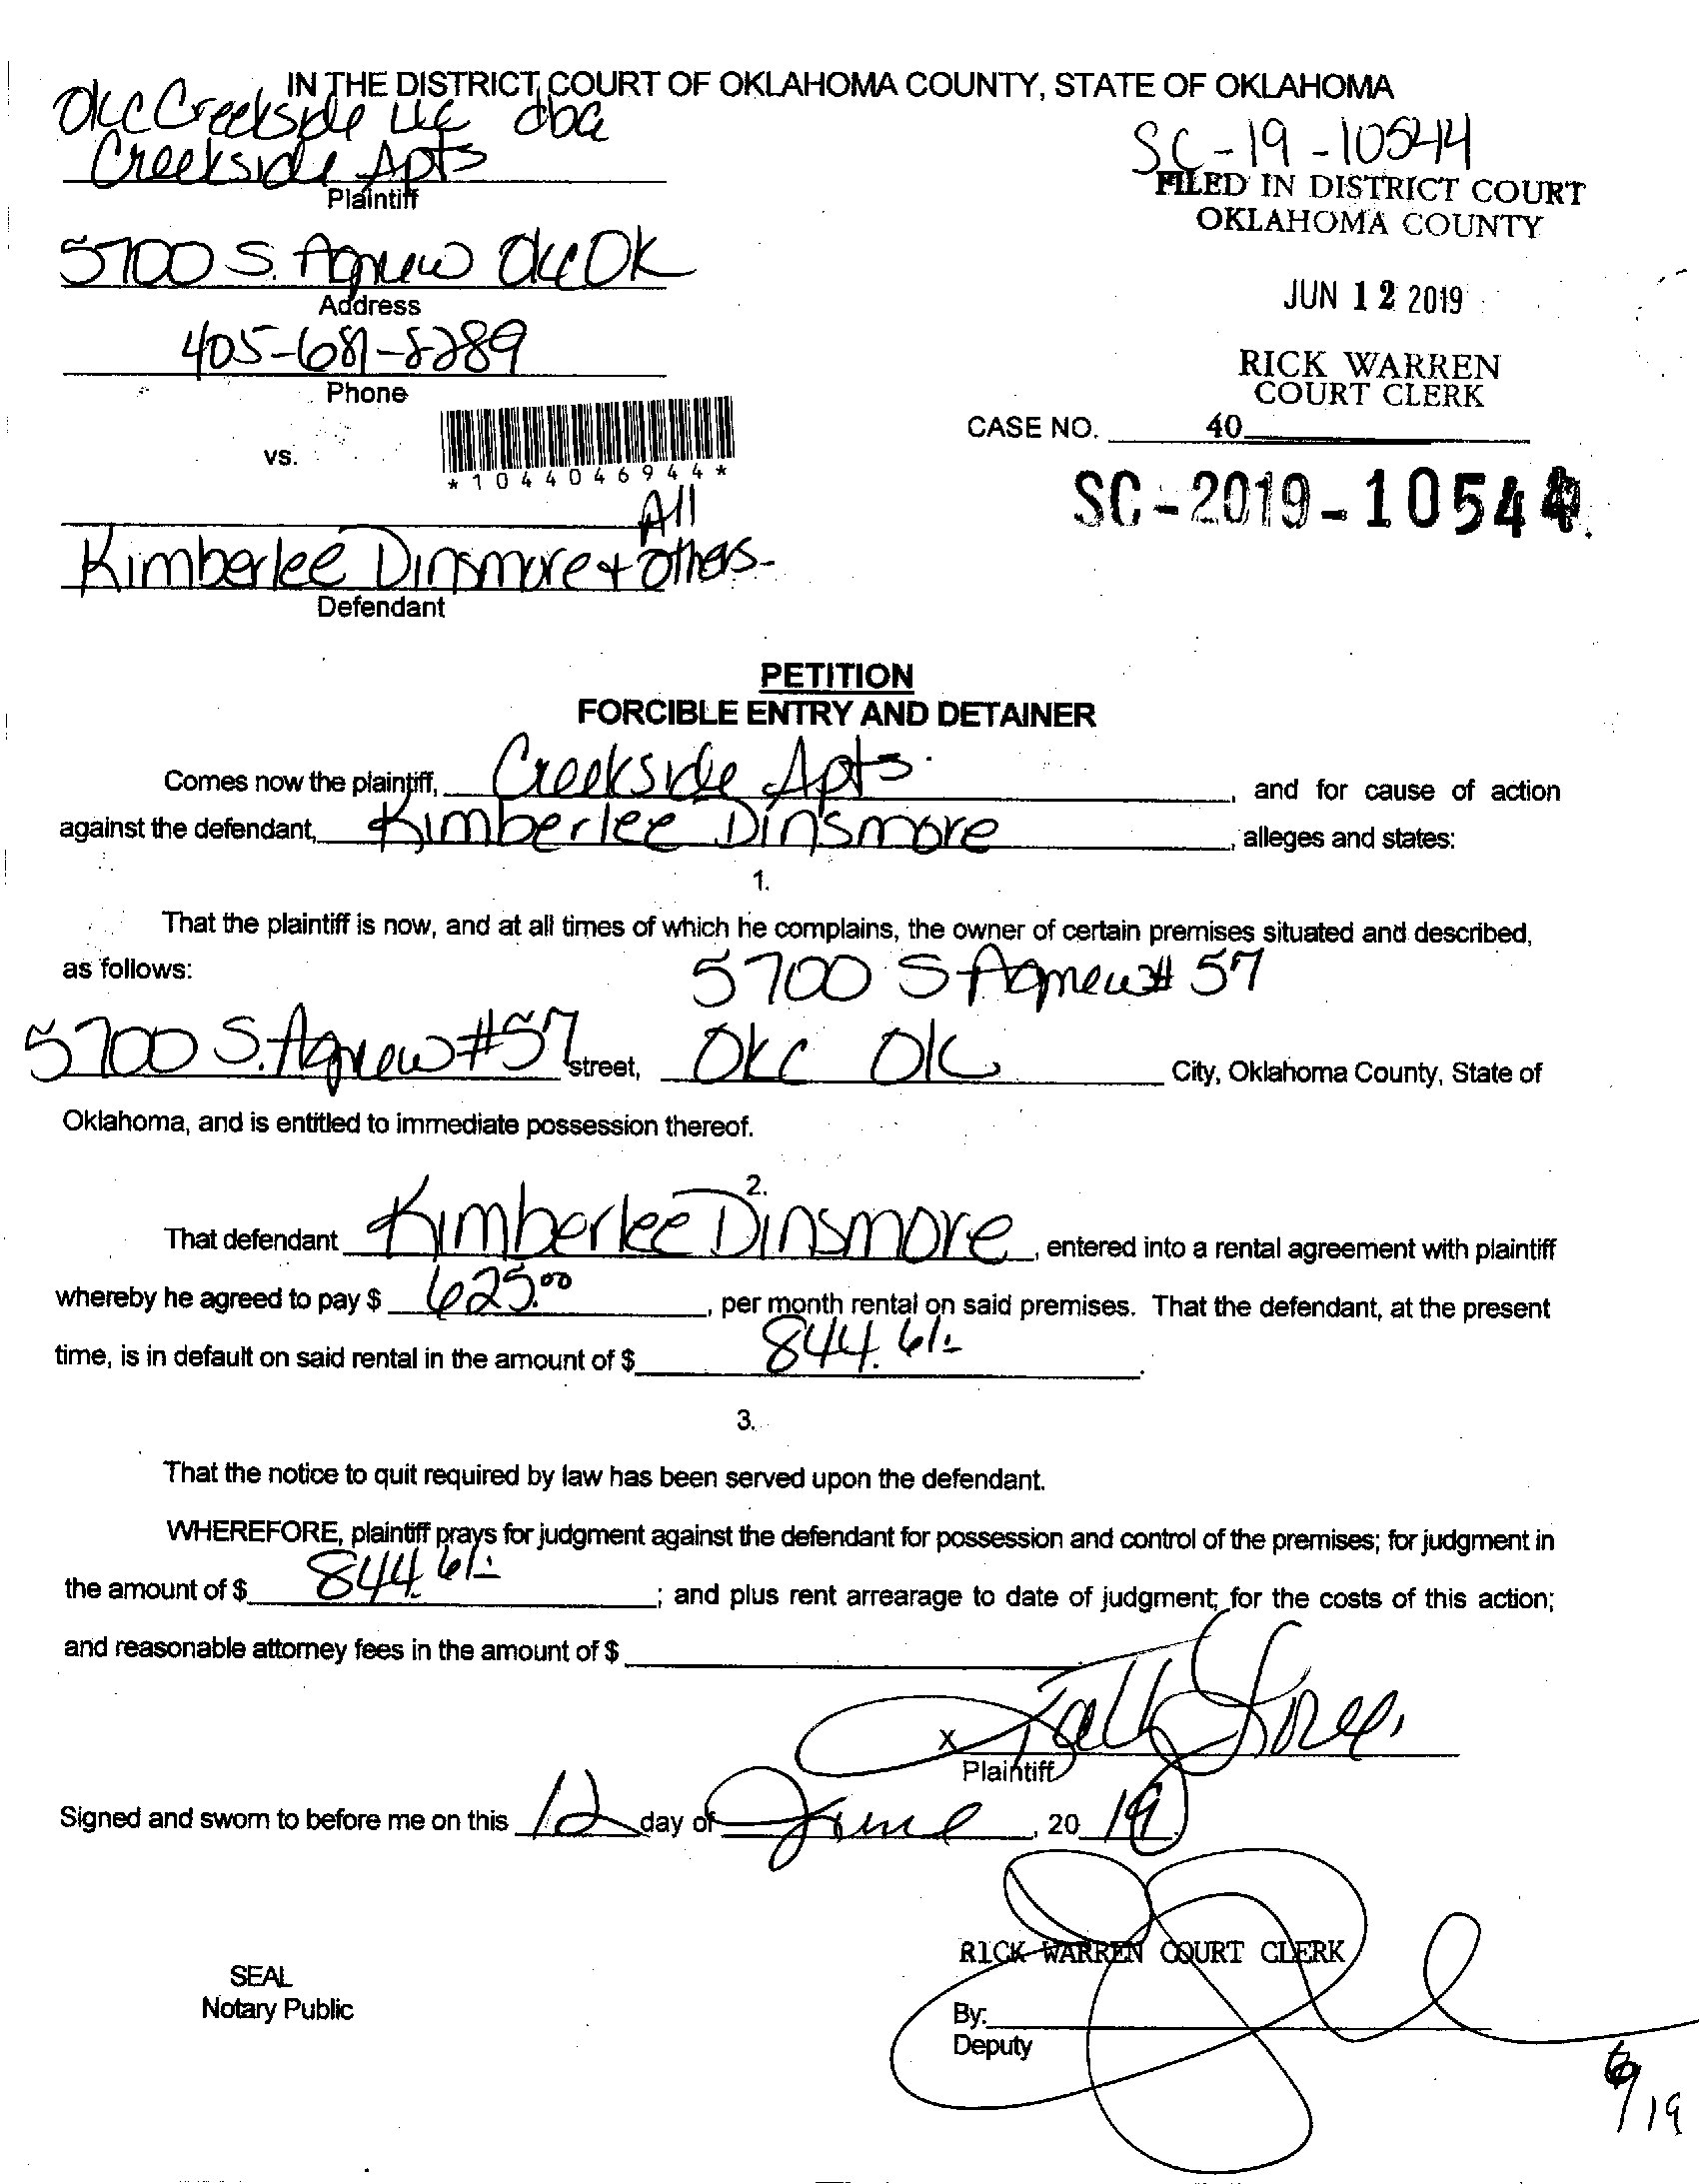 IN THE DISTRICT COURT OF OKLAHOMA COUNTY, STATE OF OKLAHOMA
OKC Creekside LLC dba
Creekside Apts
Plaintiff
SC-19-10544
FILED IN DISTRICT COURT
OKLAHOMA COUNTY
5700 S. Agnew OKC OK
Address
JUN 12 2019
405-681-8289
Phone
RICK WARREN
COURT CLERK
CASE NO. 40
vs.
*1044046944*
SC-2019-10544
All
Kimberlee Dinsmore + others-
Defendant
PETITION
FORCIBLE ENTRY AND DETAINER
Comes now the plaintiff, Creekside Apts. , and for cause of action
against the defendant, Kimberlee Dinsmore , alleges and states:
1.
That the plaintiff is now, and at all times of which he complains, the owner of certain premises situated and described,
as follows: 5700 S Agnew # 57
5700 S. Agnew #57 street, OKC OK City, Oklahoma County, State of
Oklahoma, and is entitled to immediate possession thereof.
2.
That defendant Kimberlee Dinsmore , entered into a rental agreement with plaintiff
whereby he agreed to pay $ 625.00 , per month rental on said premises. That the defendant, at the present
time, is in default on said rental in the amount of $ 844.61 .
3.
That the notice to quit required by law has been served upon the defendant.
WHEREFORE, plaintiff prays for judgment against the defendant for possession and control of the premises; for judgment in
the amount of $ 844.61 ; and plus rent arrearage to date of judgment; for the costs of this action;
and reasonable attorney fees in the amount of $
X
Plaintiff
Signed and sworn to before me on this 12 day of June , 20 19
RICK WARREN COURT CLERK
SEAL
Notary Public
By:
Deputy
6/19